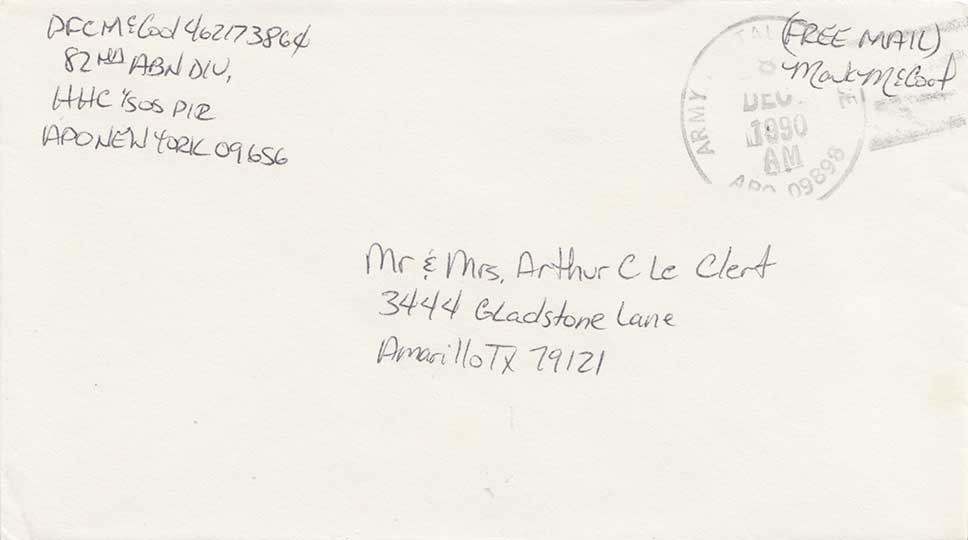 PFC McCool 462173864
82ND ABN DIV,
HHC 1/505 PIR
APO NEW YORK 09656
(FREE MAIL)
Mark McCool
ARMY
DEC.
1990
AM
APO 09898
Mr & Mrs. Arthur C Le Clert
3444 Gladstone Lane
Amarillo TX 79121